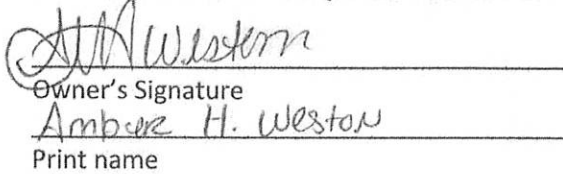 Weston
Owner's Signature
Amber H. Weston
Print name